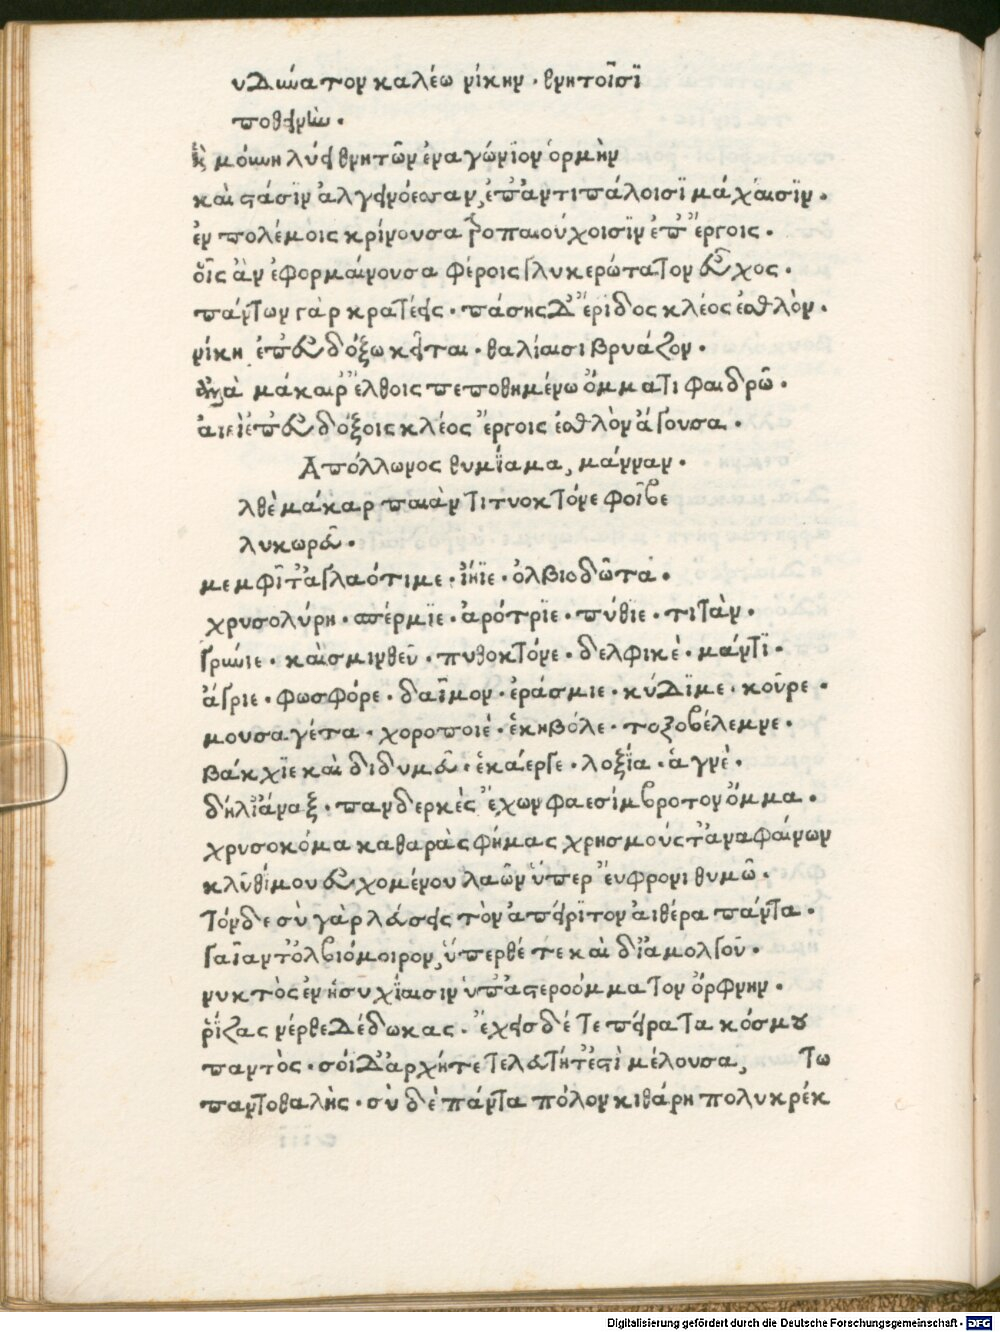 υδώατον καλέω νίκην · θνητοῖσϊ
ποθεινὼ ·
ἣ μόωη λύει θνητῶν ἐναγώνϊον ὁρμὴν
καὶ στάσϊν ἀλγεινόεσσαν, ἐπ' ἀντιπάλοισϊ μάχαισϊν ·
ἐν πολέμοις κρίνουσα τροπαιούχοισϊν ἐπ' ἔργοις ·
οἷς ἂν ἐφορμαίνουσα φέροις γλυκερώτατον εὖχος ·
πάντων γὰρ κρατέεις · πάσης δ' ἔριδος κλέος ἐσθλὸν ·
νίκη ἐπ' εὐδόξω κεῖται · θαλίαισι βρυάζον ·
ἀλλὰ μάκαιρ' ἔλθοις πεποθημένω ὄμματι φαιδρῶ ·
ἀιεὶ ἐπ' εὐδόξοις κλέος ἔργοις ἐσθλὸν ἄγουσα ·
Απόλλωνος θυμϊαμα, μάνναν ·
λθὲ μάκαρ παιὰν τιτυοκτόνε φοῖβε
λυκωρεῦ ·
μεμφῖτ' ἀγλαότιμε · ἰήϊε · ὀλβιοδῶτα ·
χρυσολύρη · σπέρμϊε · ἀρότρϊε · πύθϊε · τιτὰν ·
γρώιε · καὶ σμινθεῦ · πυθοκτόνε · δελφικὲ · μάντϊ ·
ἄγριε · φωσφόρε · δαῖμον · ἐράσμιε · κύδϊμε · κοῦρε ·
μουσαγέτα · χοροποιέ · ἑκηβόλε · τοξοβέλεμνε ·
βάκχϊε καὶ διδυμεῦ · ἑκάεργε · λοξΐα · ἁγνὲ ·
δήλϊ' ἄναξ · πανδερκὲς ἔχων φαεσίμβροτον ὄμμα ·
χρυσοκόμα καθαρὰς φήμας χρησμούς τ' ἀναφαίνων
κλῦθί μου εὐχομένου λαῶν ὕπερ εὔφρονι θυμῶ ·
τόνδε σὺ γὰρ λεύσεις τὸν ἀπείρϊτον ἀιθέρα πάντα ·
γαῖαν τ' ὀλβιόμοιρον, ὕπερθέ τε καὶ δϊ' ἀμολγοῦ ·
νυκτὸς ἐν ἡσυχΐαισιν ὑπ' ἀστεροόμματον ὄρφνην ·
ῥΐζας νέρθε δέδωκας · ἔχεις δέ τε πείρατα κόσμου
παντὸς · σόι δ' ἀρχή τε τελευτή τ' ἐστὶ μέλουσα, Τω
παντοθαλὴς · σὺ δὲ πάντα πόλον κιθάρη πολυκρέκ
Digitalisierung gefördert durch die Deutsche Forschungsgemeinschaft · DFG